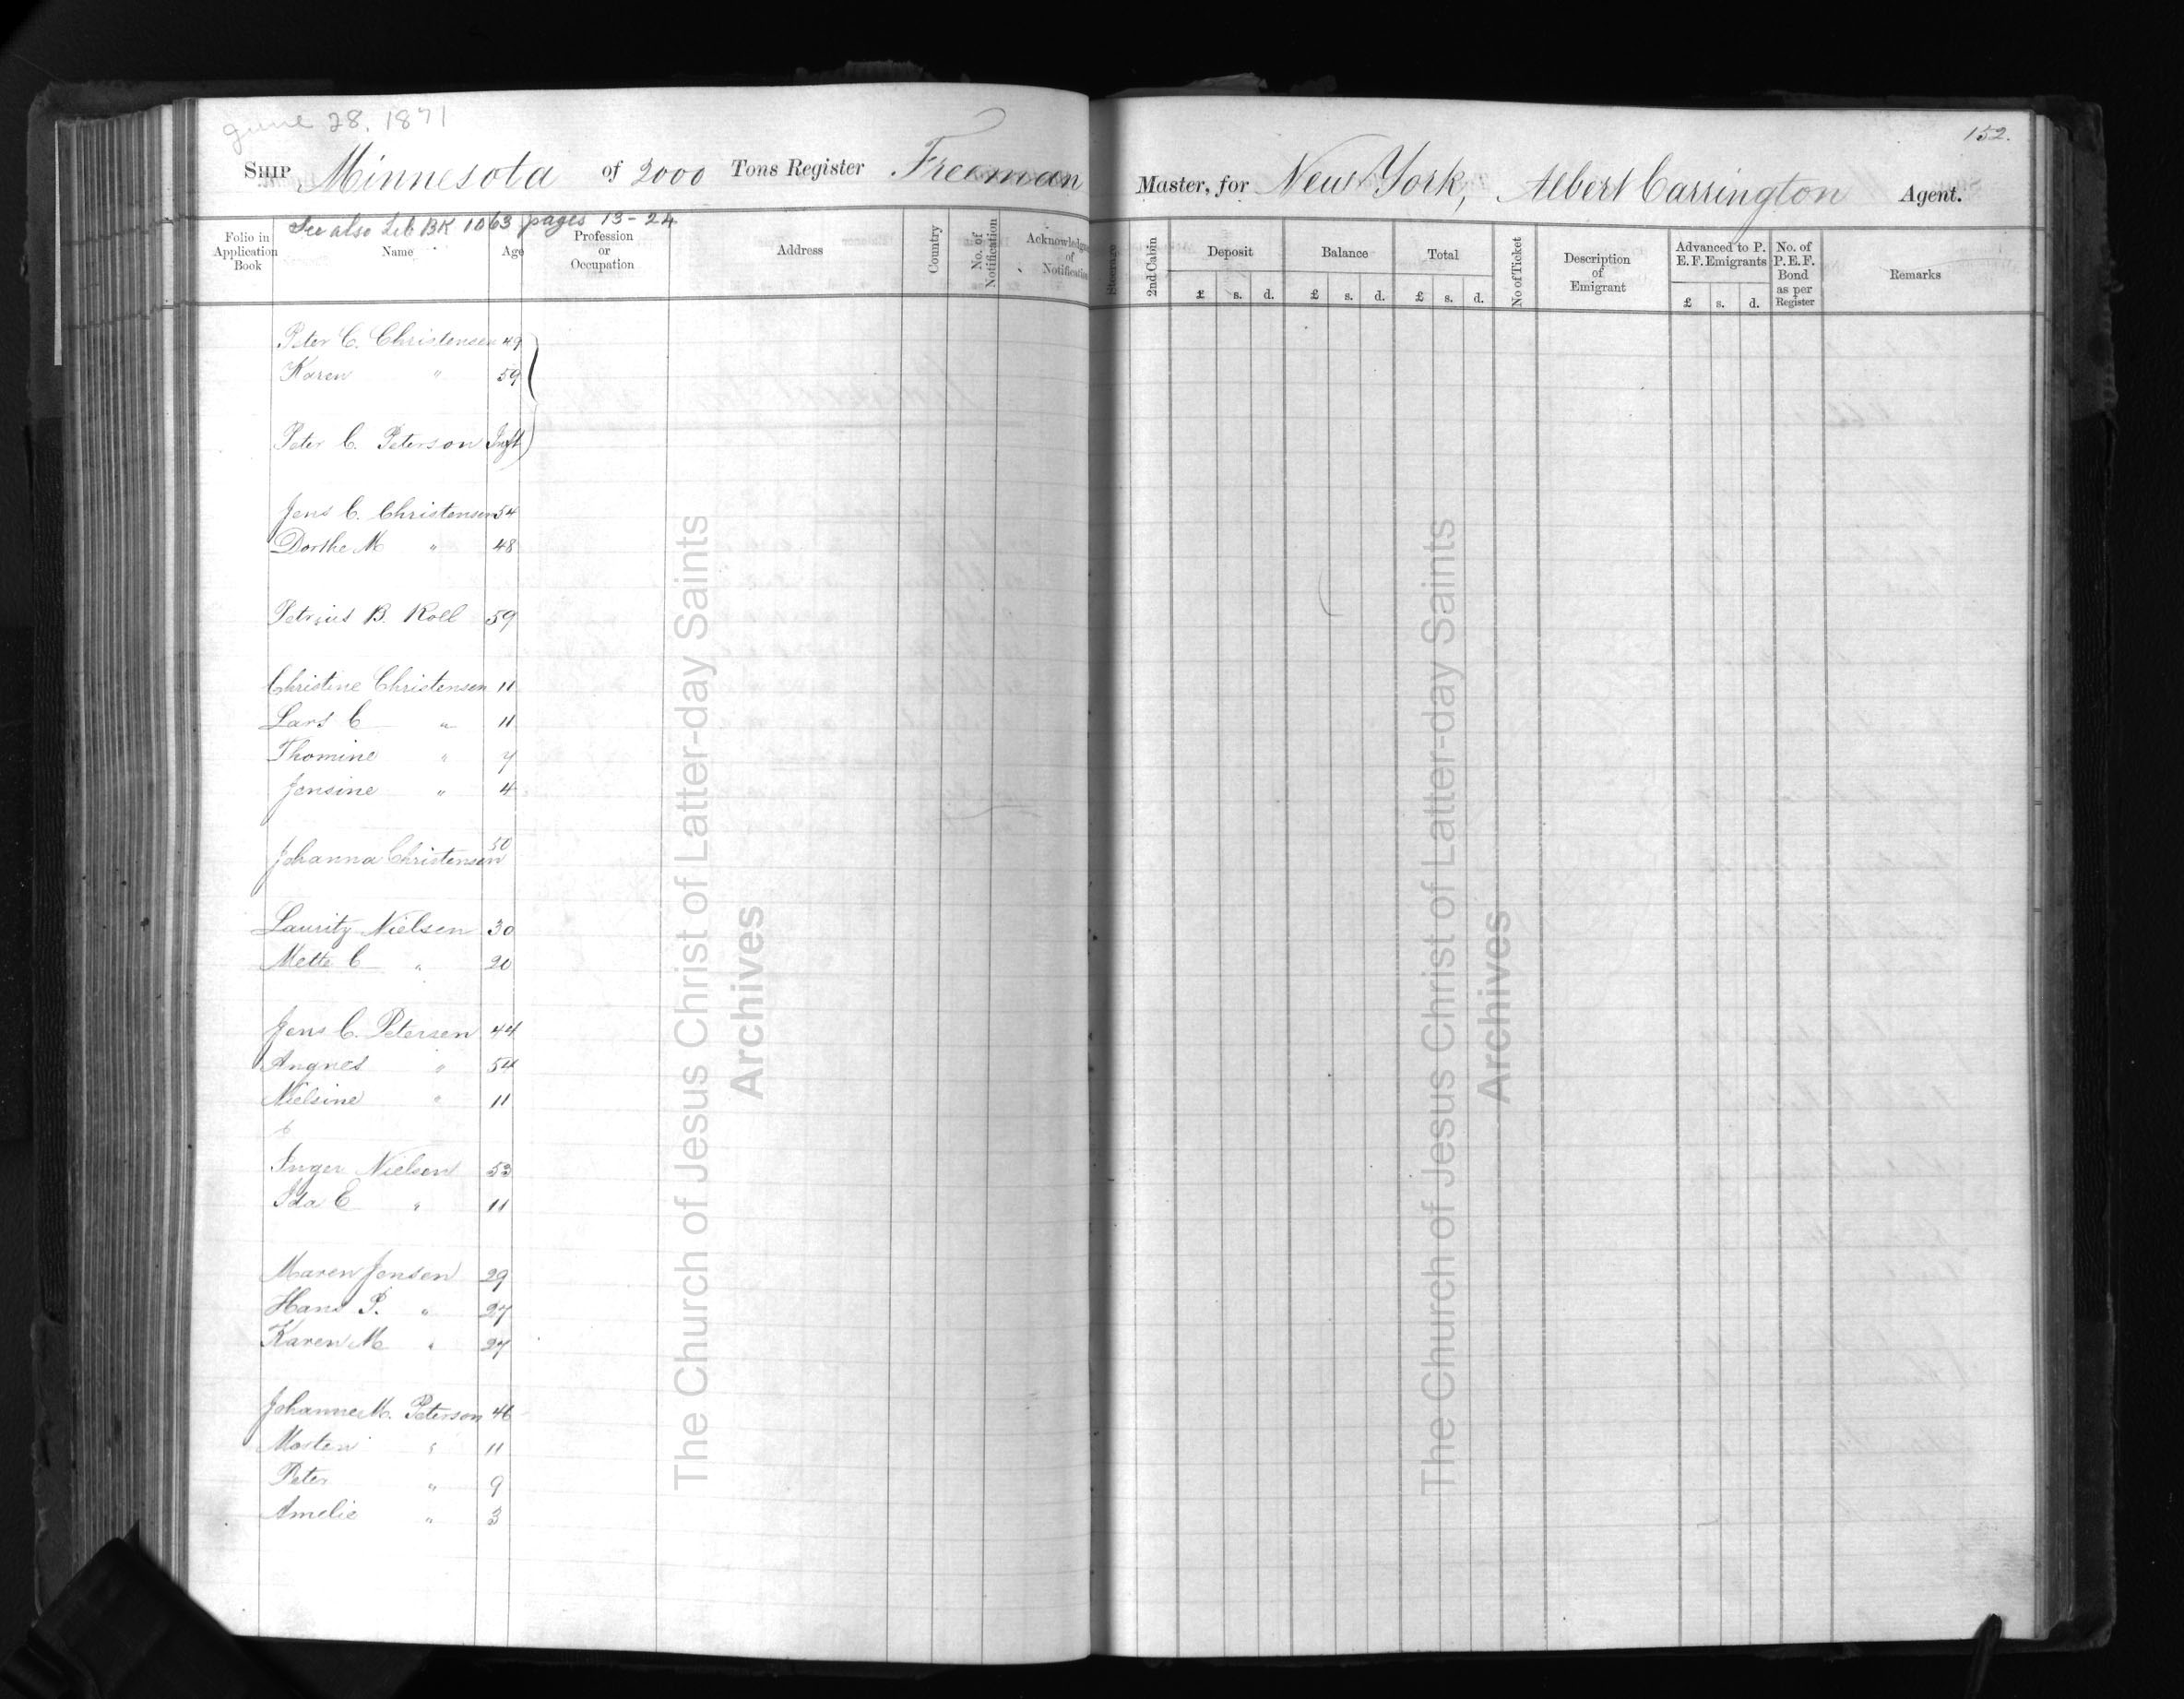 June 28, 1871
152.
SHIP Minnesota of 2000 Tons Register Freeman Master, for New York, Albert Carrington Agent.
See also Lib BK 1063 pages 13-24
Folio in Application Book
Name
Age
Profession or Occupation
Address
Country
No. of Notification
Acknowledg of Notification
Steerage
2nd Cabin
Deposit
£ s. d.
Balance
£ s. d.
Total
£ s. d.
No of Ticket
Description of Emigrant
Advanced to P. E. F. Emigrants
£ s. d.
No. of P. E. F. Bond as per Register
Remarks
Peter C. Christensen 49
Karen " 59
Peter C. Peterson Inft
Jens C. Christensen 54
Dorthe M " 48
B. Roll 59
Christine Christensen 11
Lars C " 11
Thomine " 7
Jensine " 4
Johanna Christensen 50
Lauritz Nielsen 30
Mette C " 20
Jens C. Petersen 44
Angnes " 54
Nielsine " 11
Inger Nielsen 53
Ida E " 11
Maren Jensen 29
Hans P. " 27
Karen M " 27
Johanne M. Peterson 46
Morten " 11
Peter " 9
Amelie " 3
The Church of Jesus Christ of Latter-day Saints
Archives
The Church of Jesus Christ of Latter-day Saints
Archives